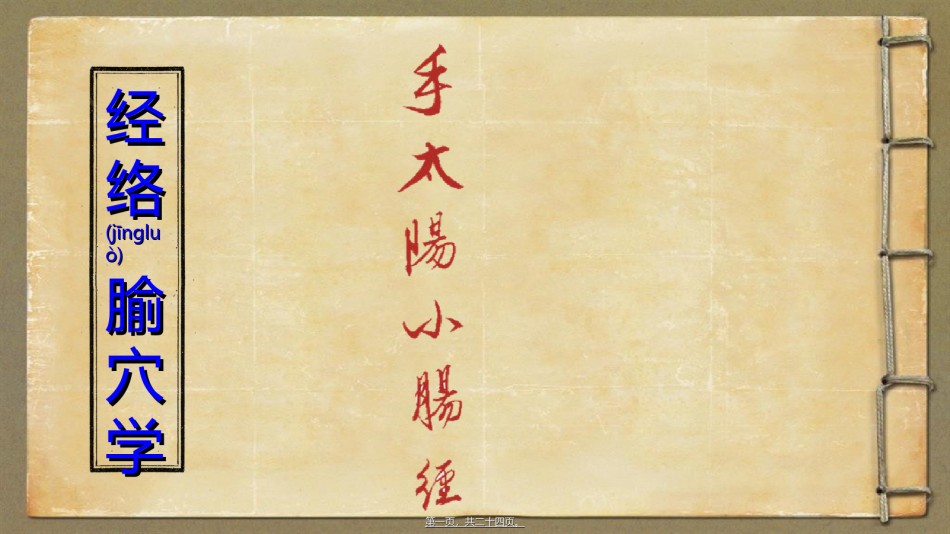 经
络
(jīnglu
ò)
腧
穴
学
手
太
陽
小
腸
經
第一页，共二十四页。